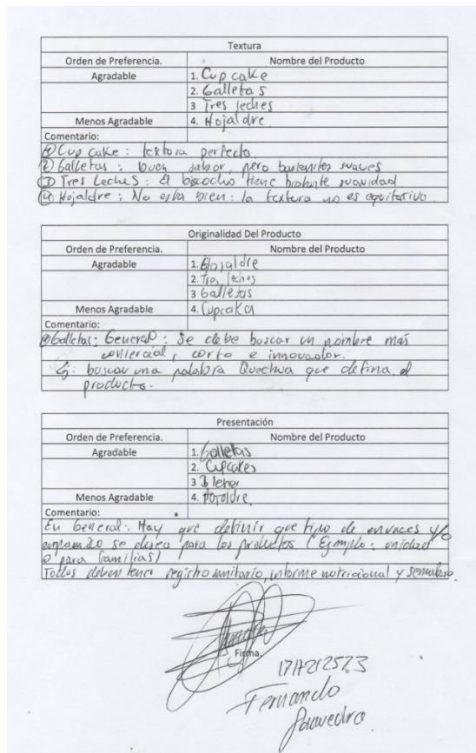 Textura
Orden de Preferencia. Nombre del Producto
Agradable 1. Cup cake
2. Galletas
3 Tres leches
Menos Agradable 4. Hojaldre
Comentario:
① Cup cake: textura perfecta
② Galletas: buen sabor, pero bastantes suaves
③ Tres Leches: El biscocho tiene bastante suavidad
④ Hojaldre: No esta bien: la textura no es equitativa.
Originalidad Del Producto
Orden de Preferencia. Nombre del Producto
Agradable 1. Hojaldre
2. Tres leches
3 Galletas
Menos Agradable 4. Cupcake
Comentario:
Galletas: General: Se debe buscar un nombre más
comercial, corto e innovador.
Ej: buscar una palabra Quechua que defina el
producto.
Presentación
Orden de Preferencia. Nombre del Producto
Agradable 1. Galletas
2. Cupcakes
3
Menos Agradable 4. Hojaldre
Comentario:
En General: Hay que definir que tipo de envaces y/o
se desea para los productos (Ejemplo: unidad
o para familias)
Todos deben tener registro sanitario, informe nutricional y semaforo.
Firma.
Fernando
Saavedra